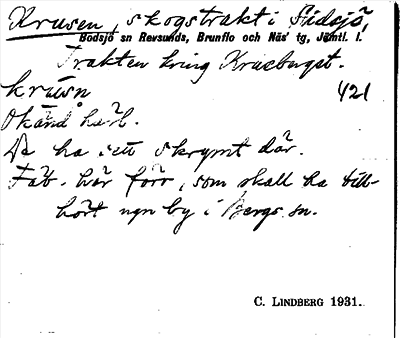 Krusen, skogstrakt i Südsjö,
Bodsjö sn Revsunds, Brunflo och Näs' tg, Jämtl. l.
Trakten kring Kruseberget.
krúsn 421
Okänd härl.
De ha sett skrymt där.
Fäb. här förr, som skall ha till-
hört ngn by i Bergs sn.
C. LINDBERG 1931.